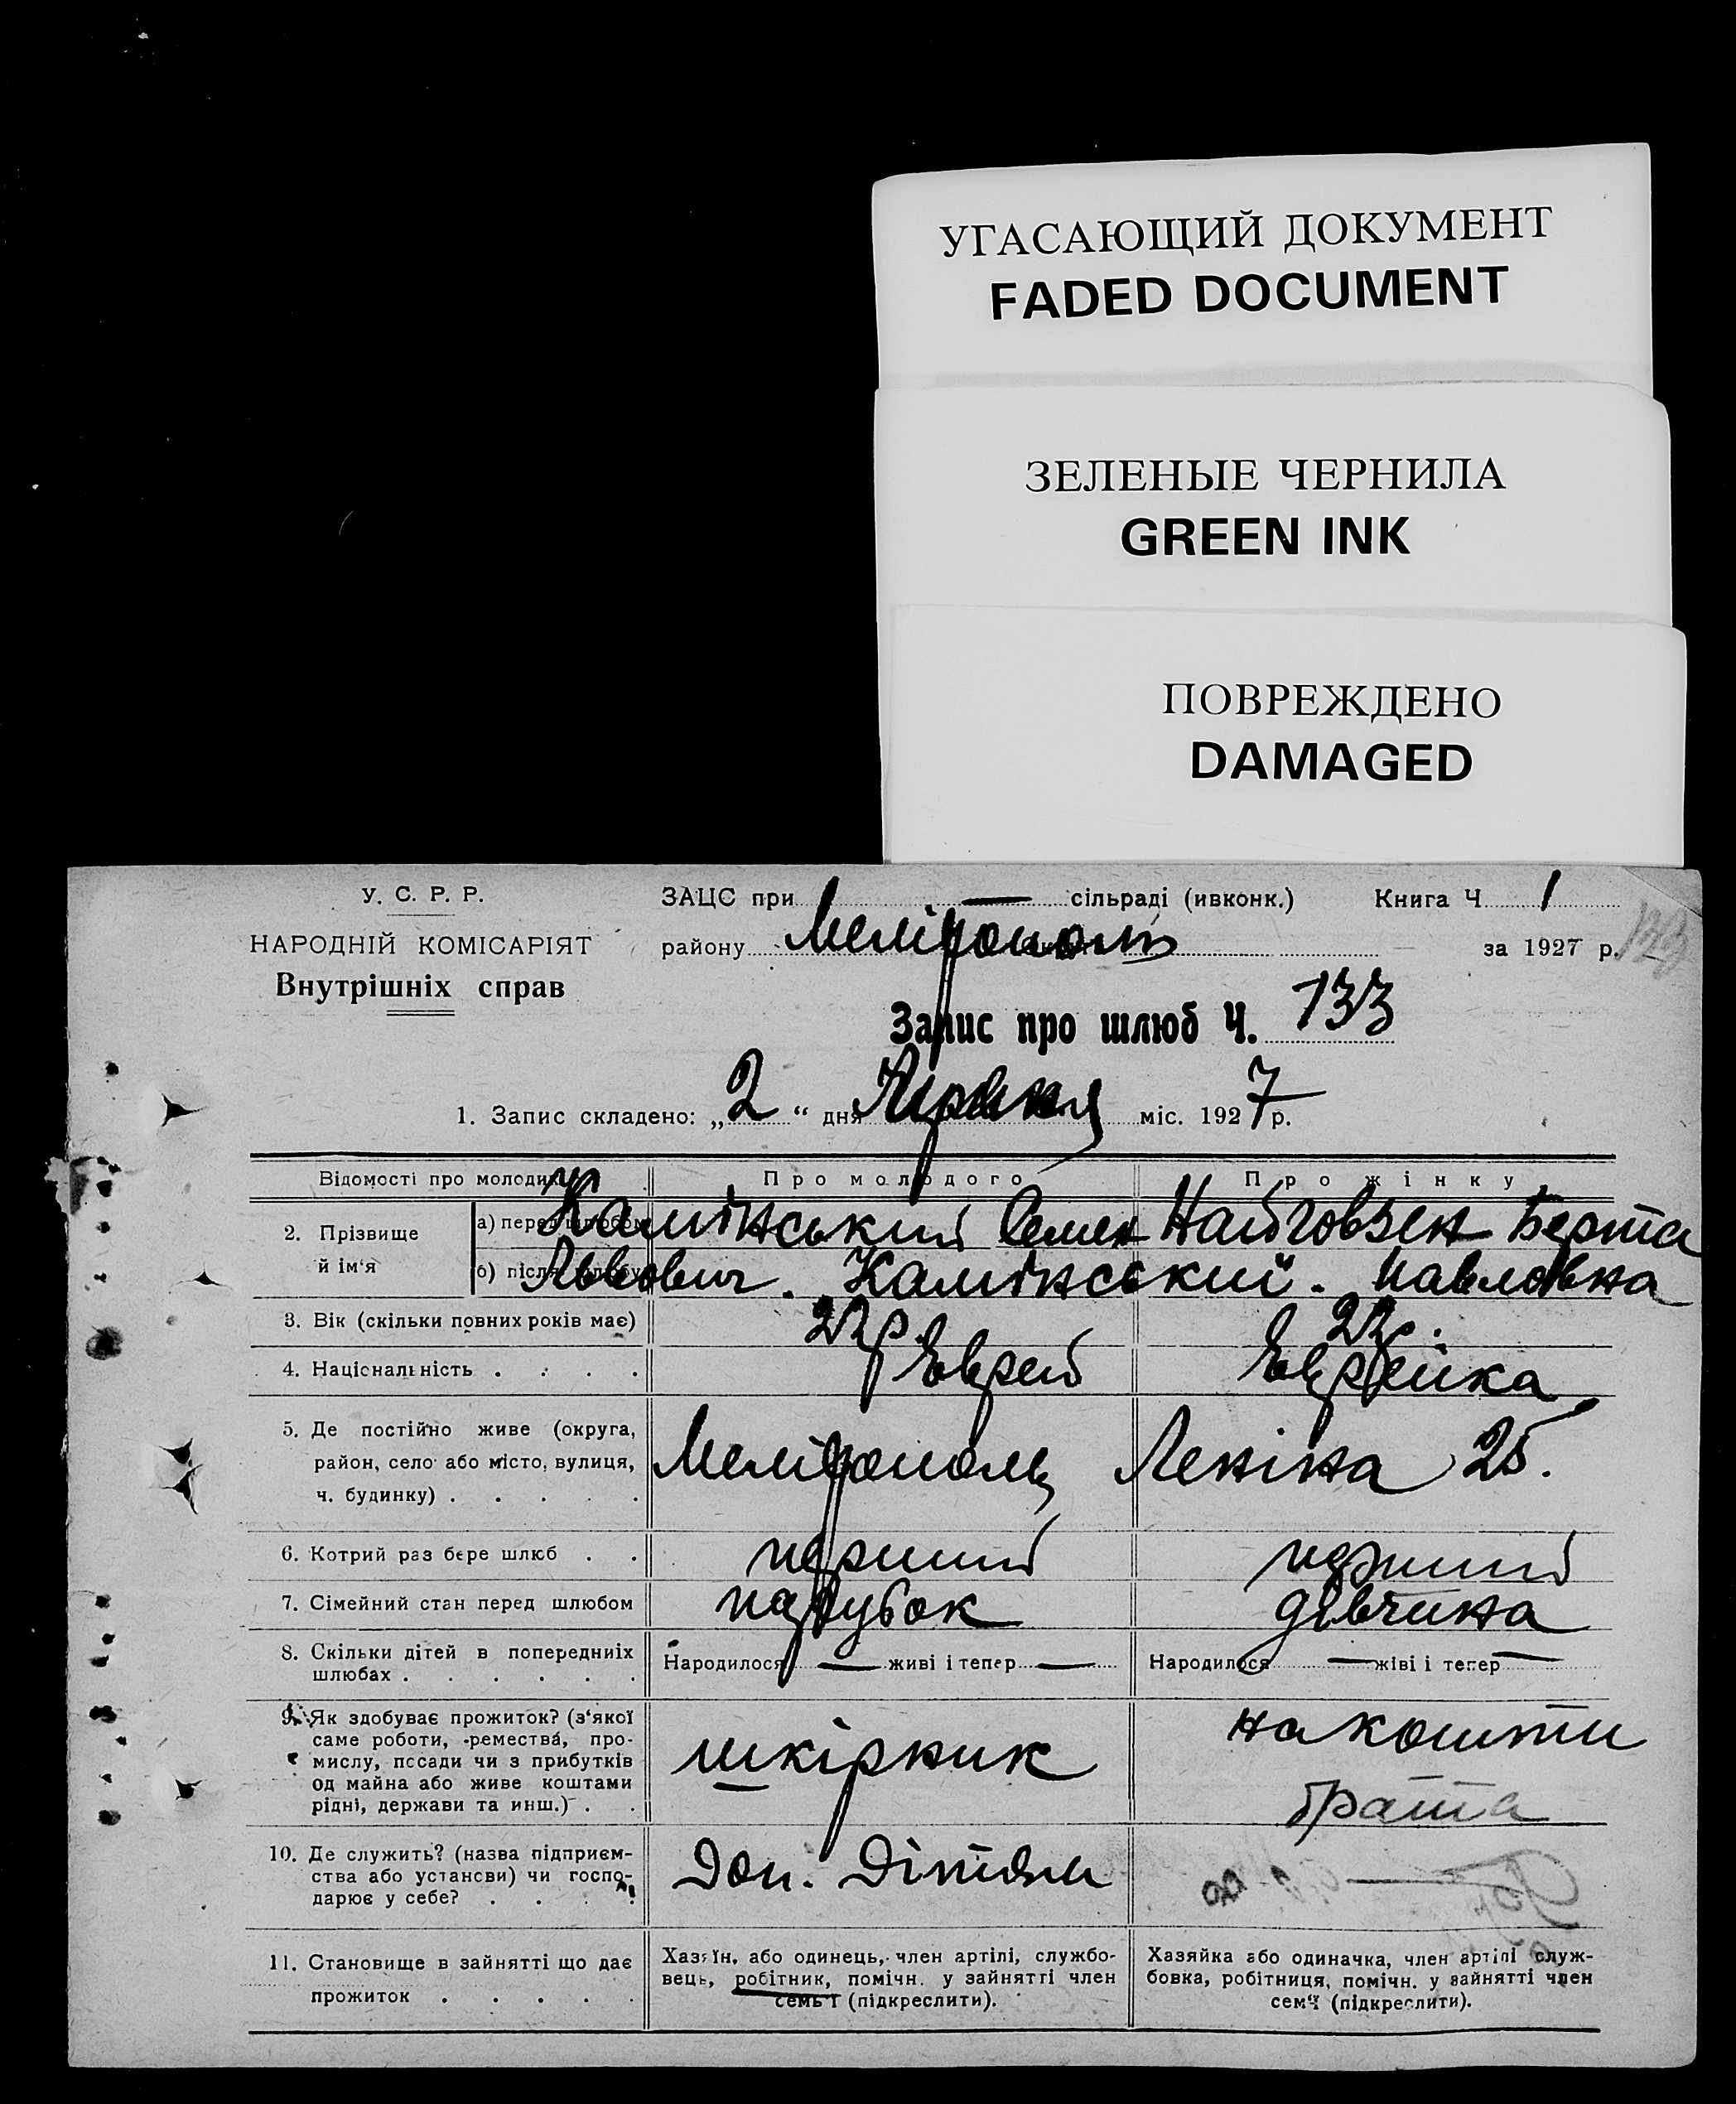 УГАСАЮЩИЙ ДОКУМЕНТ
FADED DOCUMENT
ЗЕЛЕНЫЕ ЧЕРНИЛА
GREEN INK
ПОВРЕЖДЕНО
DAMAGED
У. С. Р. Р.
НАРОДНІЙ КОМІСАРІЯТ
Внутрішніх справ
ЗАЦС при — сільраді (ивконк.) Книга Ч 1
району Мелітополь за 1927 р. 133
Запис про шлюб Ч. 133
1. Запис складено: „2“ дня міс. 1927 р.
Відомості про молодих Про молодого Про жінку
2. Прізвище й ім‘я
а) перед шлюбом Камінський Семен Найговзен Берта
б) після шлюбу Львович. Камінський. Павловна
3. Вік (скільки повних років має) 22 р. 22 р.
4. Національність . . . . Еврей Еврейка
5. Де постійно живе (округа,
район, село або місто, вулиця,
ч. будинку) . . . . . Мелітополь Леніна 25.
6. Котрий раз бере шлюб . . перший перший
7. Сімейний стан перед шлюбом парубок дівчина
8. Скільки дітей в попередніх
шлюбах . . . . . .
Народилося — живі і тепер —
Народилося — жіві і тепер —
9. Як здобуває прожиток? (з‘якої
саме роботи, -ремества, про-
мислу, пссади чи з прибутків
од майна або живе коштами
рідні, держави та инш.) . .
шкірник
на кошти
брата
10. Де служить? (назва підприєм-
ства або установи) чи госпо-
дарює у себе? . . . .
—
11. Становище в зайнятті що дає
прожиток . . . . .
Хазяїн, або одинець, член артілі, службо-
вець, робітник, помічн. у зайнятті член
семь‘ї (підкреслити).
Хазяйка або одиначка, член артілі служ-
бовка, робітниця, помічн. у зайнятті член
сем‘ї (підкреслити).